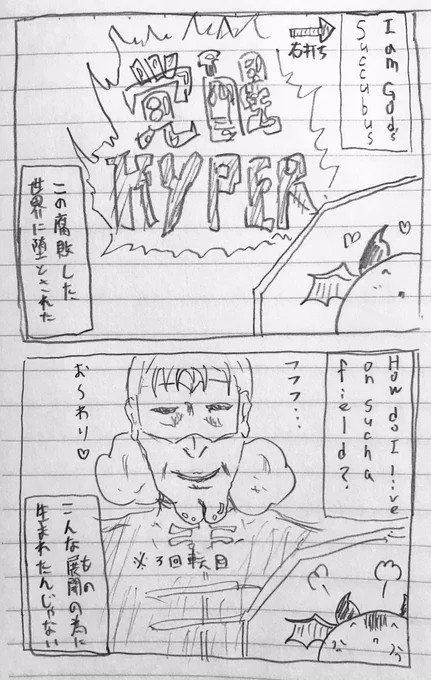 I am God's
Succubus
右打ち
覚醒
HYPER
この腐敗した
世界に堕とされた
How do I live
on sucha
field?
フフフ…
お〜わり♡
※3回転目
もの
こんな展開の為に
生まれたんじゃない